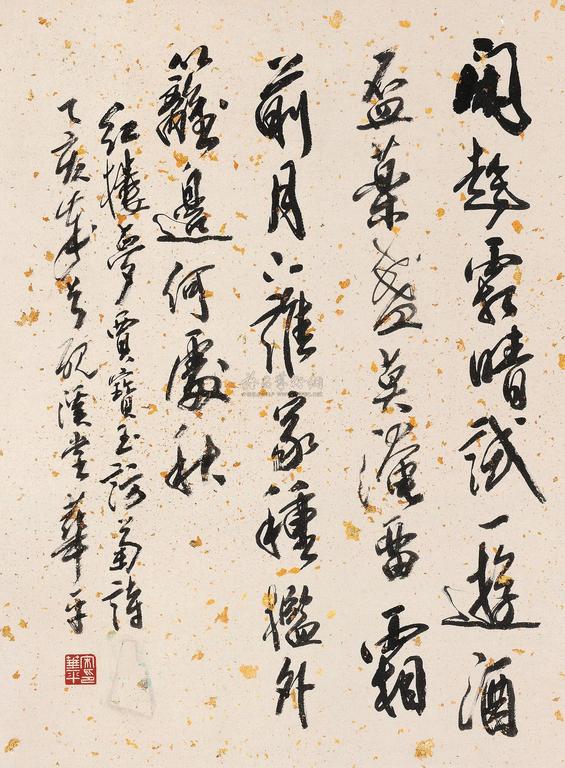 閒趁霜晴試一遊酒
盃藥盞莫淹留霜
前月下誰家種檻外
籬邊何處秋
紅樓夢賈寶玉訪菊詩
乙亥歲於硯堂華平
宋印華平